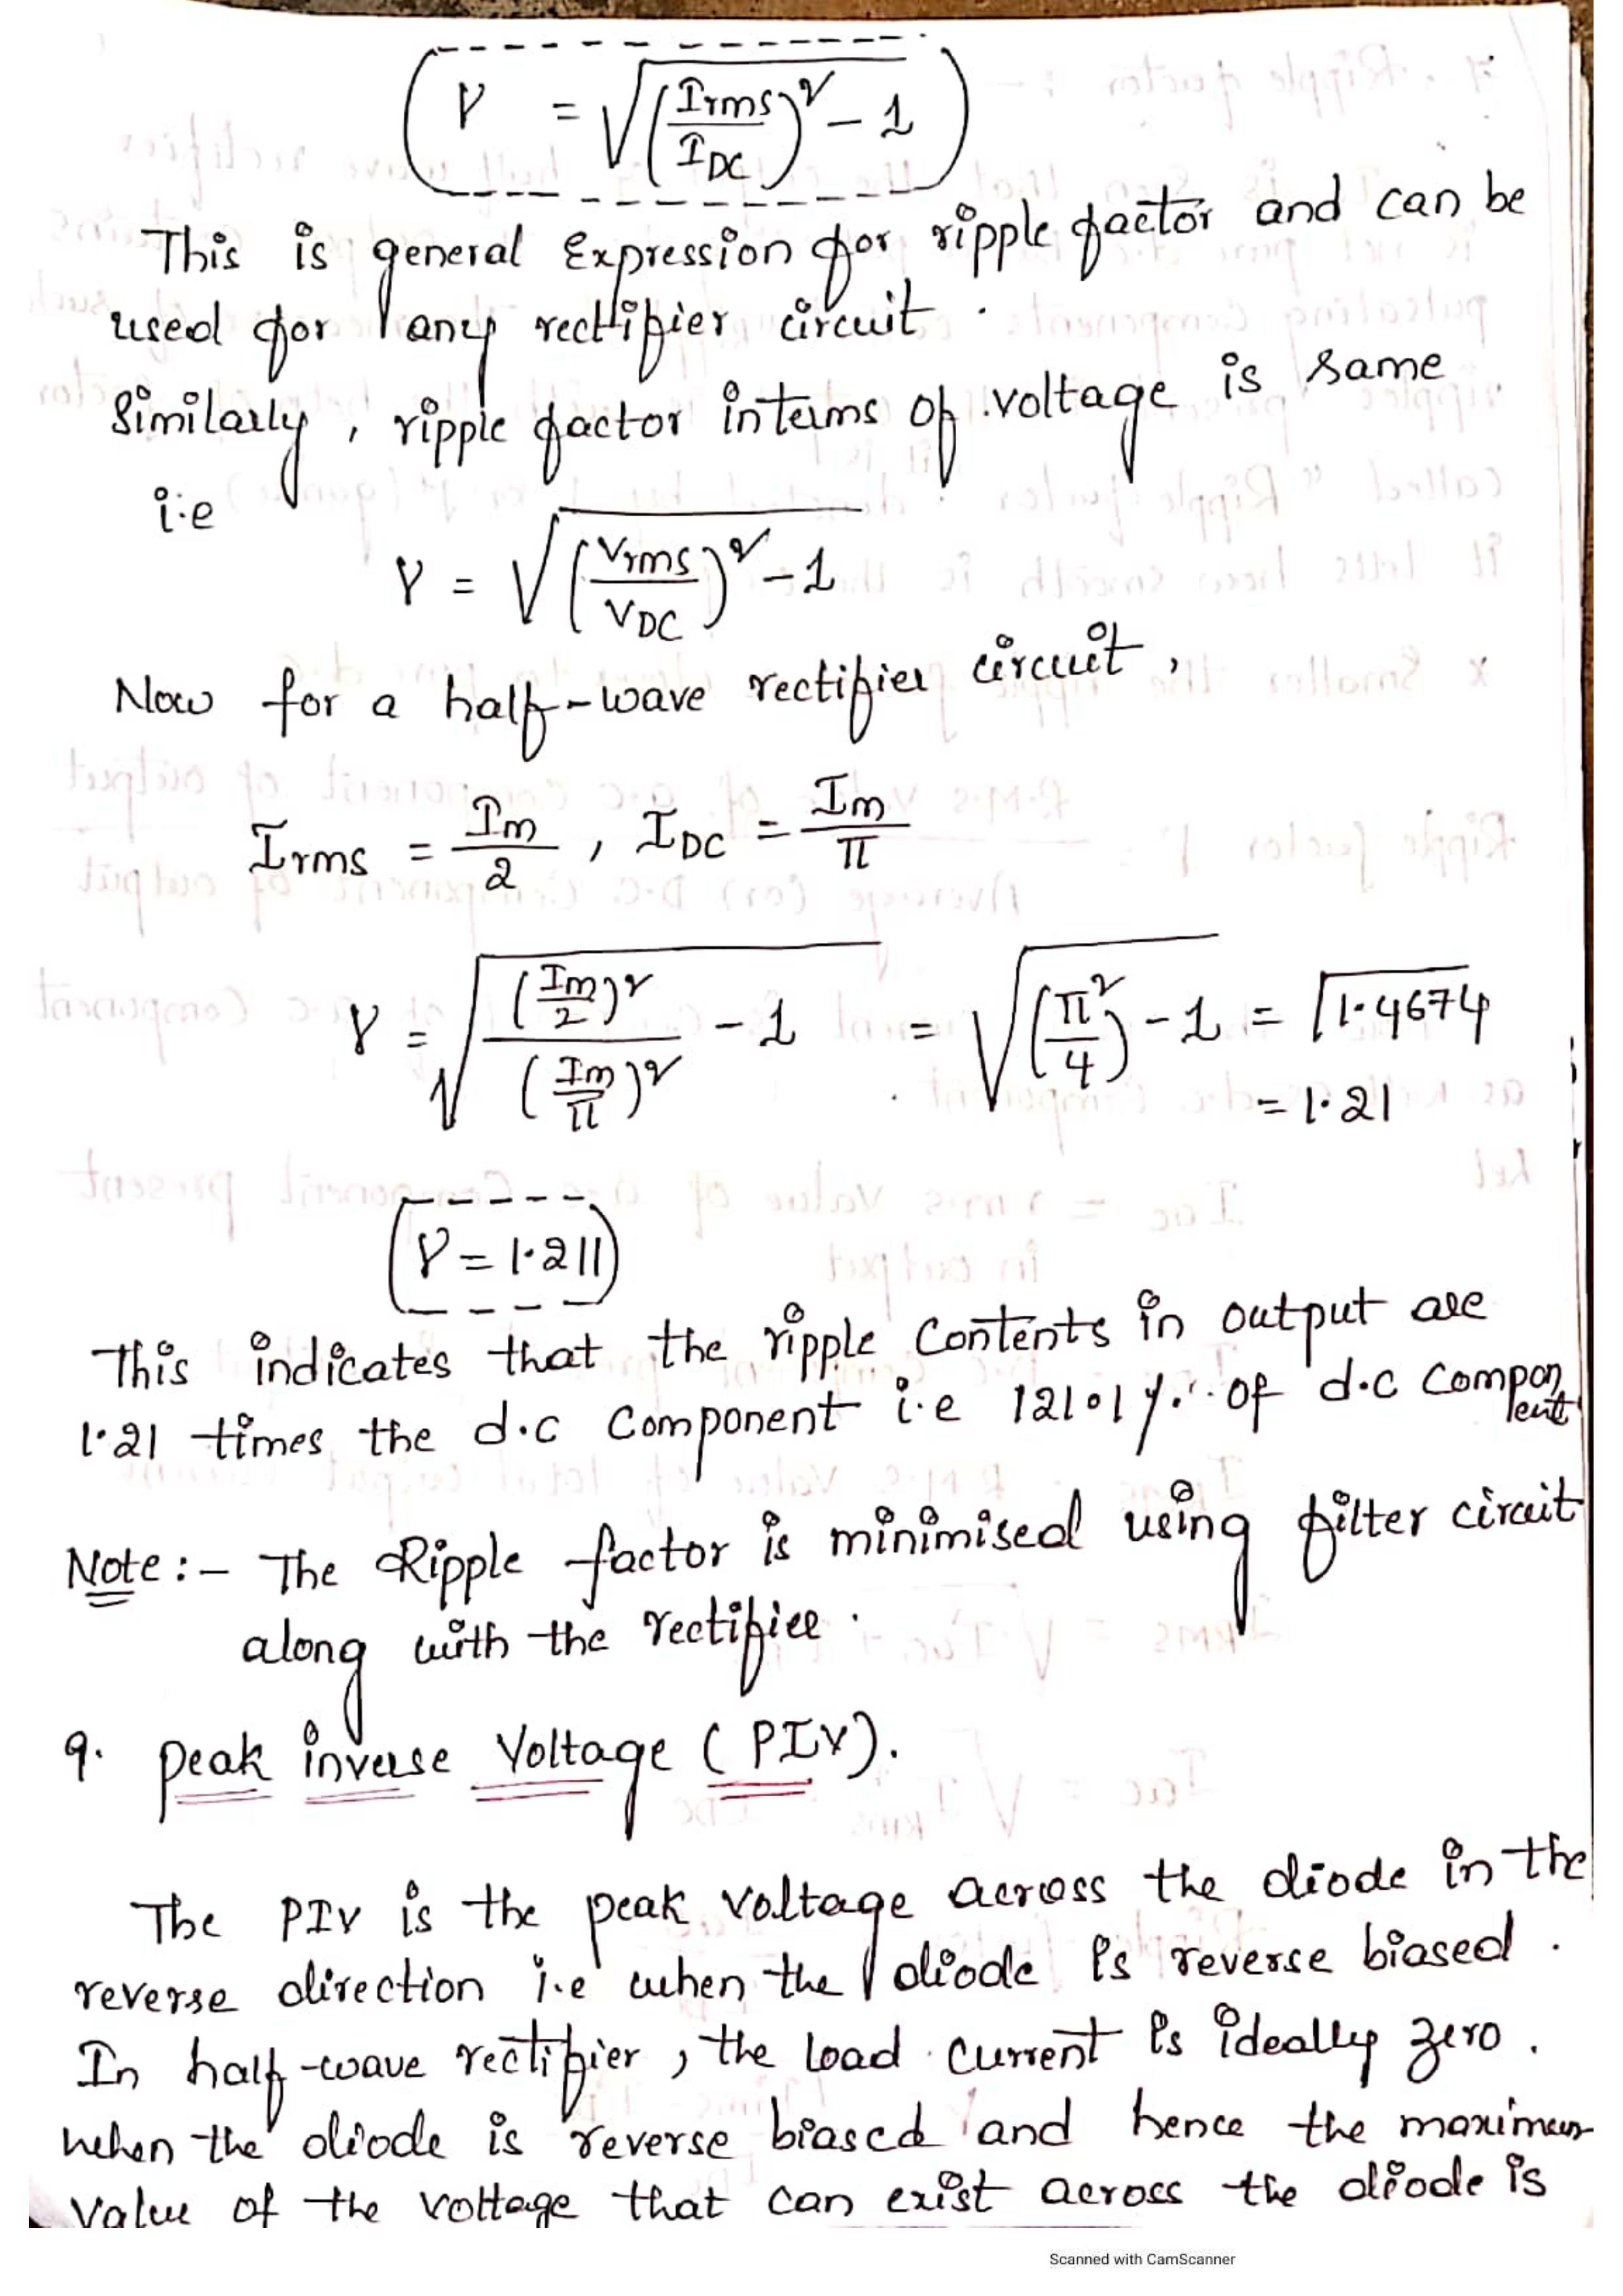 γ = √(Irms/IDC)² - 1
This is general Expression for ripple factor and can be
used for any rectifier circuit.
Similarly, ripple factor interms of voltage is same
i.e
γ = √(Vrms/VDC)² - 1
Now for a half-wave rectifier circuit,
Irms = Im/2 , IDC = Im/π
γ = √(Im/2)²/(Im/π)² - 1 = √(π²/4) - 1 = √1.4674
= 1.21
γ = 1.211
This indicates that the ripple contents in output are
1.21 times the d.c component i.e 121.1 %. of d.c component
Note :- The Ripple factor is minimised using filter circuit
along with the rectifier.
9. peak inverse Voltage (PIV).
The PIV is the peak voltage across the diode in the
reverse direction i.e when the diode is reverse biased.
In half-wave rectifier, the load current is ideally zero.
when the diode is reverse biased and hence the maximum
value of the voltage that can exist across the diode is
Scanned with CamScanner